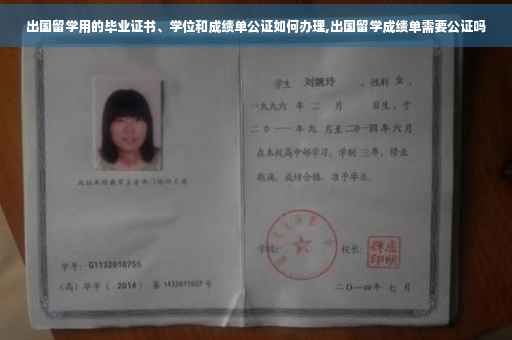 出国留学用的毕业证书、学位和成绩单公证如何办理,出国留学成绩单需要公证吗
学生 刘婉玲 ，性别 女 ，
一九九六 年 二 月 日生，于
二〇一一年 九 月至 二〇一四年 六 月
在本校高中部学习，学制 三 年，修业
期满，成绩合格，准予毕业。
学号： G1132010755
学校： 校长：
(高) 毕字 ( 2014 ) 第 1432011607 号
二〇一四年 七 月